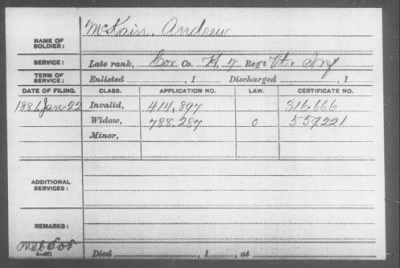 NAME OF SOLDIER: McKain, Andrew
SERVICE: Late rank, Cor. Co. H, 7 Reg't Vt. Inf
TERM OF SERVICE: Enlisted , 1 Discharged , 1
DATE OF FILING. CLASS. APPLICATION NO. LAW. CERTIFICATE NO.
1881 Jan-22 Invalid, 414,897 316,666
Widow, 788,287 0 559221
Minor,
ADDITIONAL SERVICES:
REMARKS:
Died , 1 , at